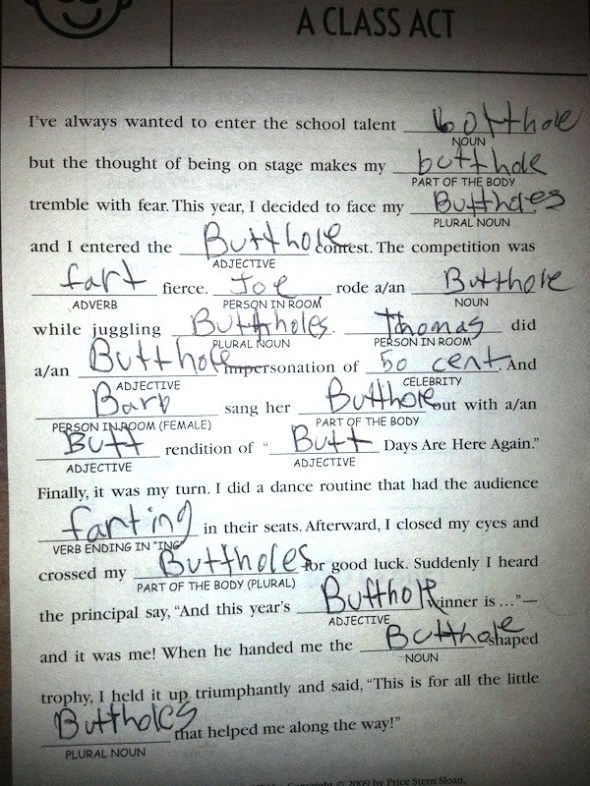 A CLASS ACT
I've always wanted to enter the school talent botthole
NOUN
but the thought of being on stage makes my butthole
PART OF THE BODY
tremble with fear. This year, I decided to face my Buttholes
PLURAL NOUN
and I entered the Butthole contest. The competition was
ADJECTIVE
fart fierce. Joe rode a/an Butthole
ADVERB PERSON IN ROOM NOUN
while juggling Buttholes. Thomas did
PLURAL NOUN PERSON IN ROOM
a/an Butthole impersonation of 50 cent. And
ADJECTIVE CELEBRITY
Barb sang her Butthole out with a/an
PERSON IN ROOM (FEMALE) PART OF THE BODY
Butt rendition of "Butt Days Are Here Again."
ADJECTIVE ADJECTIVE
Finally, it was my turn. I did a dance routine that had the audience
farting in their seats. Afterward, I closed my eyes and
VERB ENDING IN "ING"
crossed my Buttholes for good luck. Suddenly I heard
PART OF THE BODY (PLURAL)
the principal say, "And this year's Butthole winner is ..."—
ADJECTIVE
and it was me! When he handed me the Butthole-shaped
NOUN
trophy, I held it up triumphantly and said, "This is for all the little
Buttholes that helped me along the way!"
PLURAL NOUN
Copyright © 2009 by Price Stern Sloan,